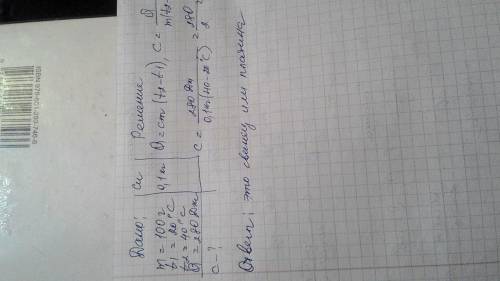 Дано: Си Решение
m = 100 г 0,1 кг Q = cm (t2 - t1), c = Q
t1 = 20°C m(t2
t2 = 40°C
Q = 280 Дж c = 280 Дж = 280
c - ? 0,1 кг (40-20°C) 2
Ответ: это свинец или платина